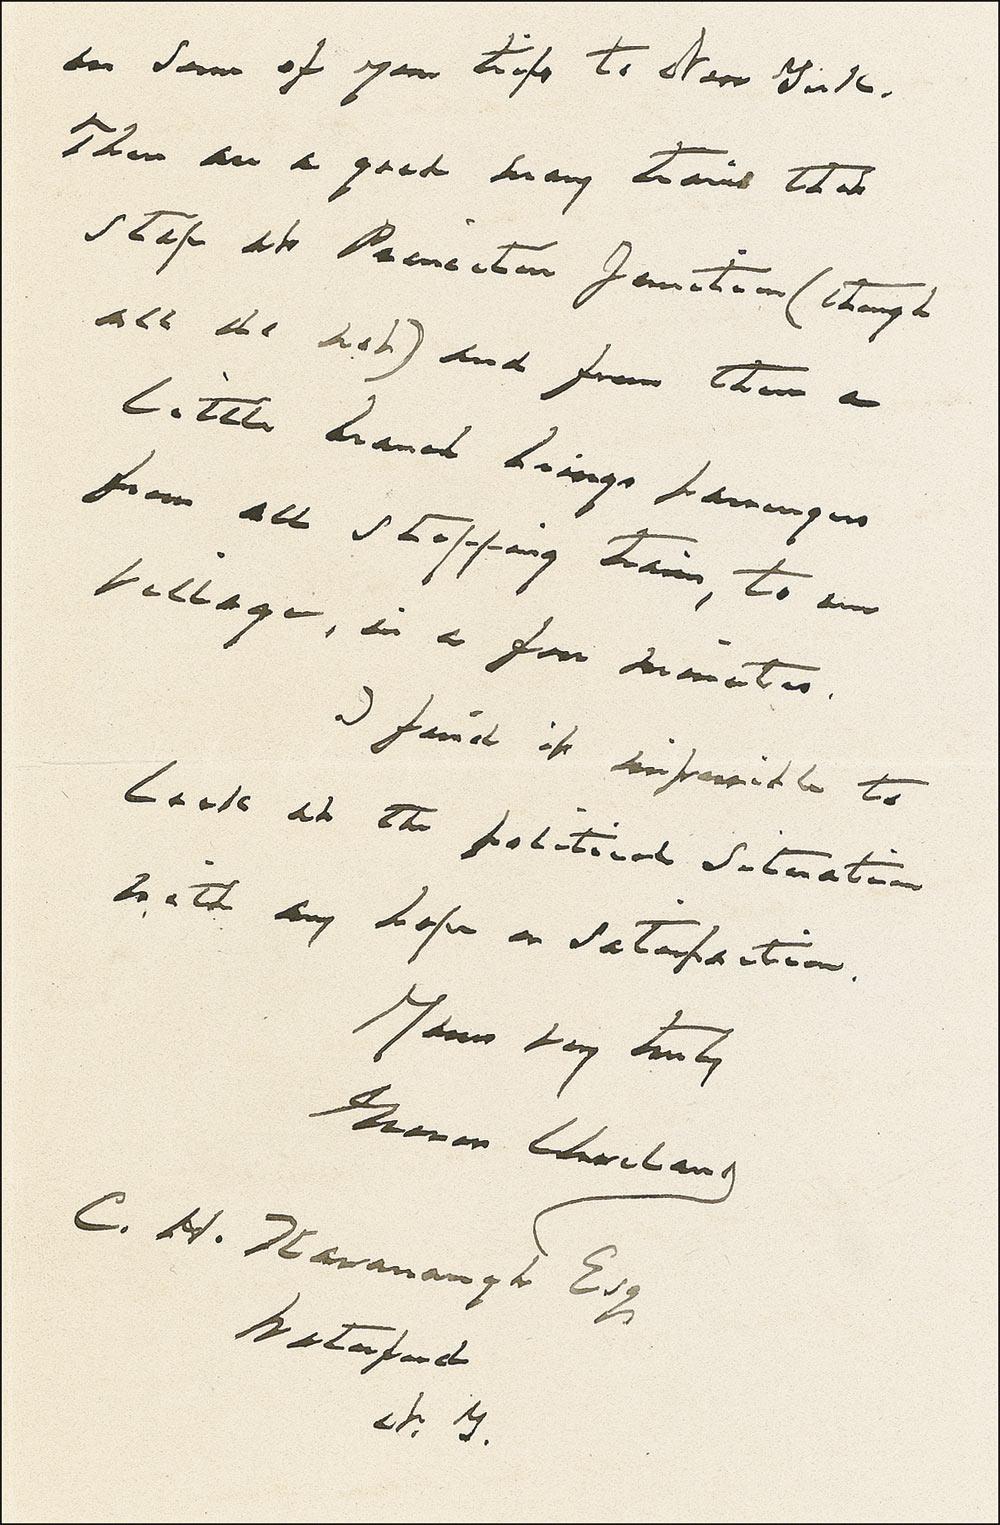 on some of your trips to New York.
There are a good many trains that
stop at Princeton Junction (though
all do not) and from there a
little branch brings passengers
from all stopping trains, to our
village, in a few minutes.
I find it impossible to
look at the political situation
with any hope or satisfaction.
Yours very truly
Grover Cleveland
C. H. Kavanaugh Esq
Waterford
N. Y.